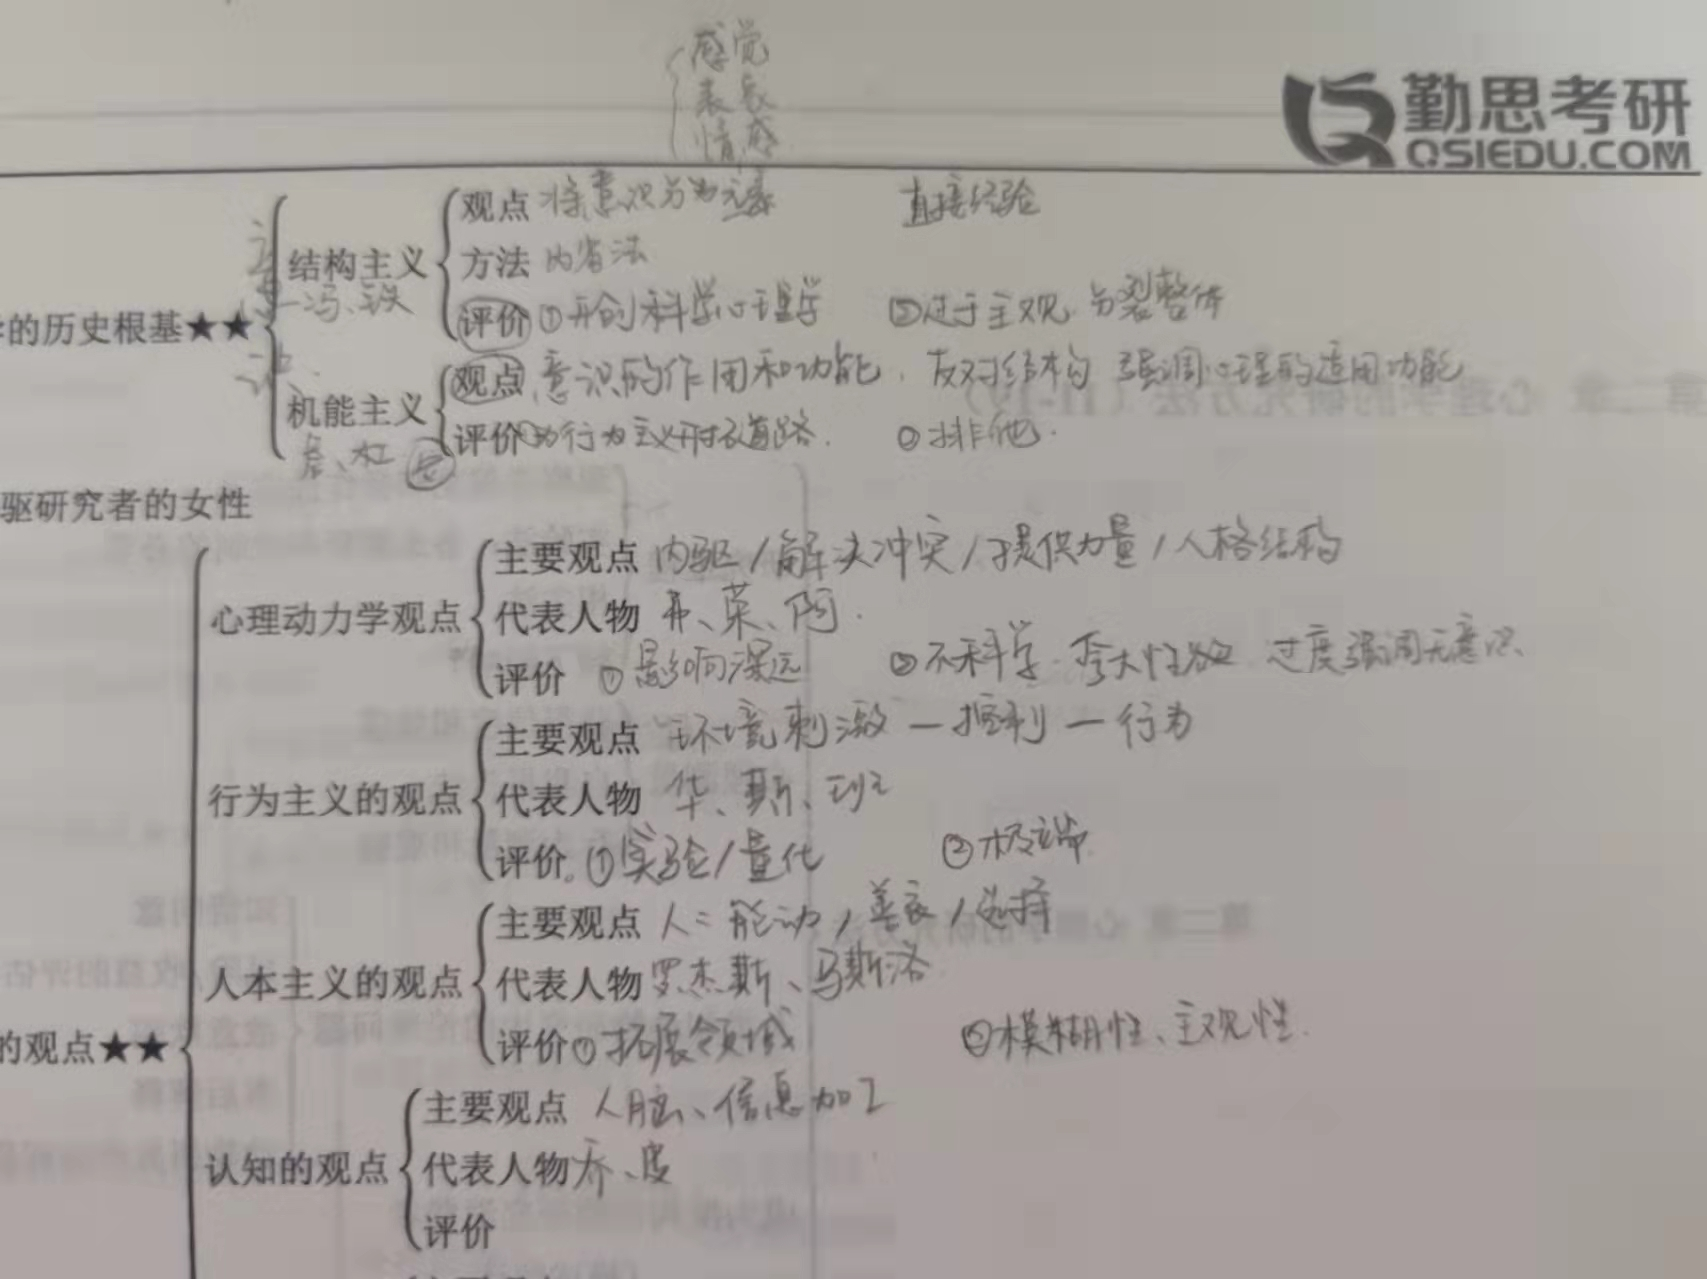 感觉
表象
情感
勤思考研
QSIEDU.COM
观点 将意识分为元素 直接经验
结构主义
方法 内省法
冯、铁
评价 ①开创科学心理学 ②过于主观、分裂整体
的历史根基★★
观点 意识的作用和功能、反对结构 强调心理的适用功能
机能主义
评价①为行为主义开拓道路. ②排他.
詹、杜
驱研究者的女性
主要观点 内驱/解决冲突/提供力量/人格结构
心理动力学观点
代表人物 弗、荣、阿.
评价 ①影响深远 ②不科学、夸大性欲、过度强调无意识
主要观点 环境刺激—控制—行为
行为主义的观点
代表人物 华、斯、班
评价. ①实验/量化 ②极端
主要观点 人=能动/善良/选择
人本主义的观点
代表人物 罗杰斯、马斯洛
评价① 拓展领域 ②模糊性、主观性.
的观点★★
主要观点 人脑、信息加工
认知的观点
代表人物 乔、皮
评价